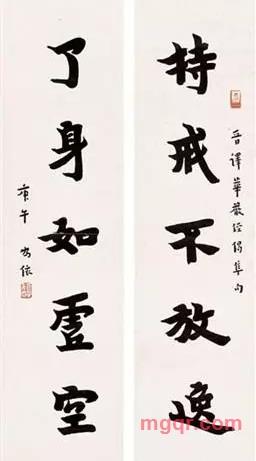 持戒不放逸
晋譯華嚴經偈集句
了身如虛空
庚午
mgqr.com